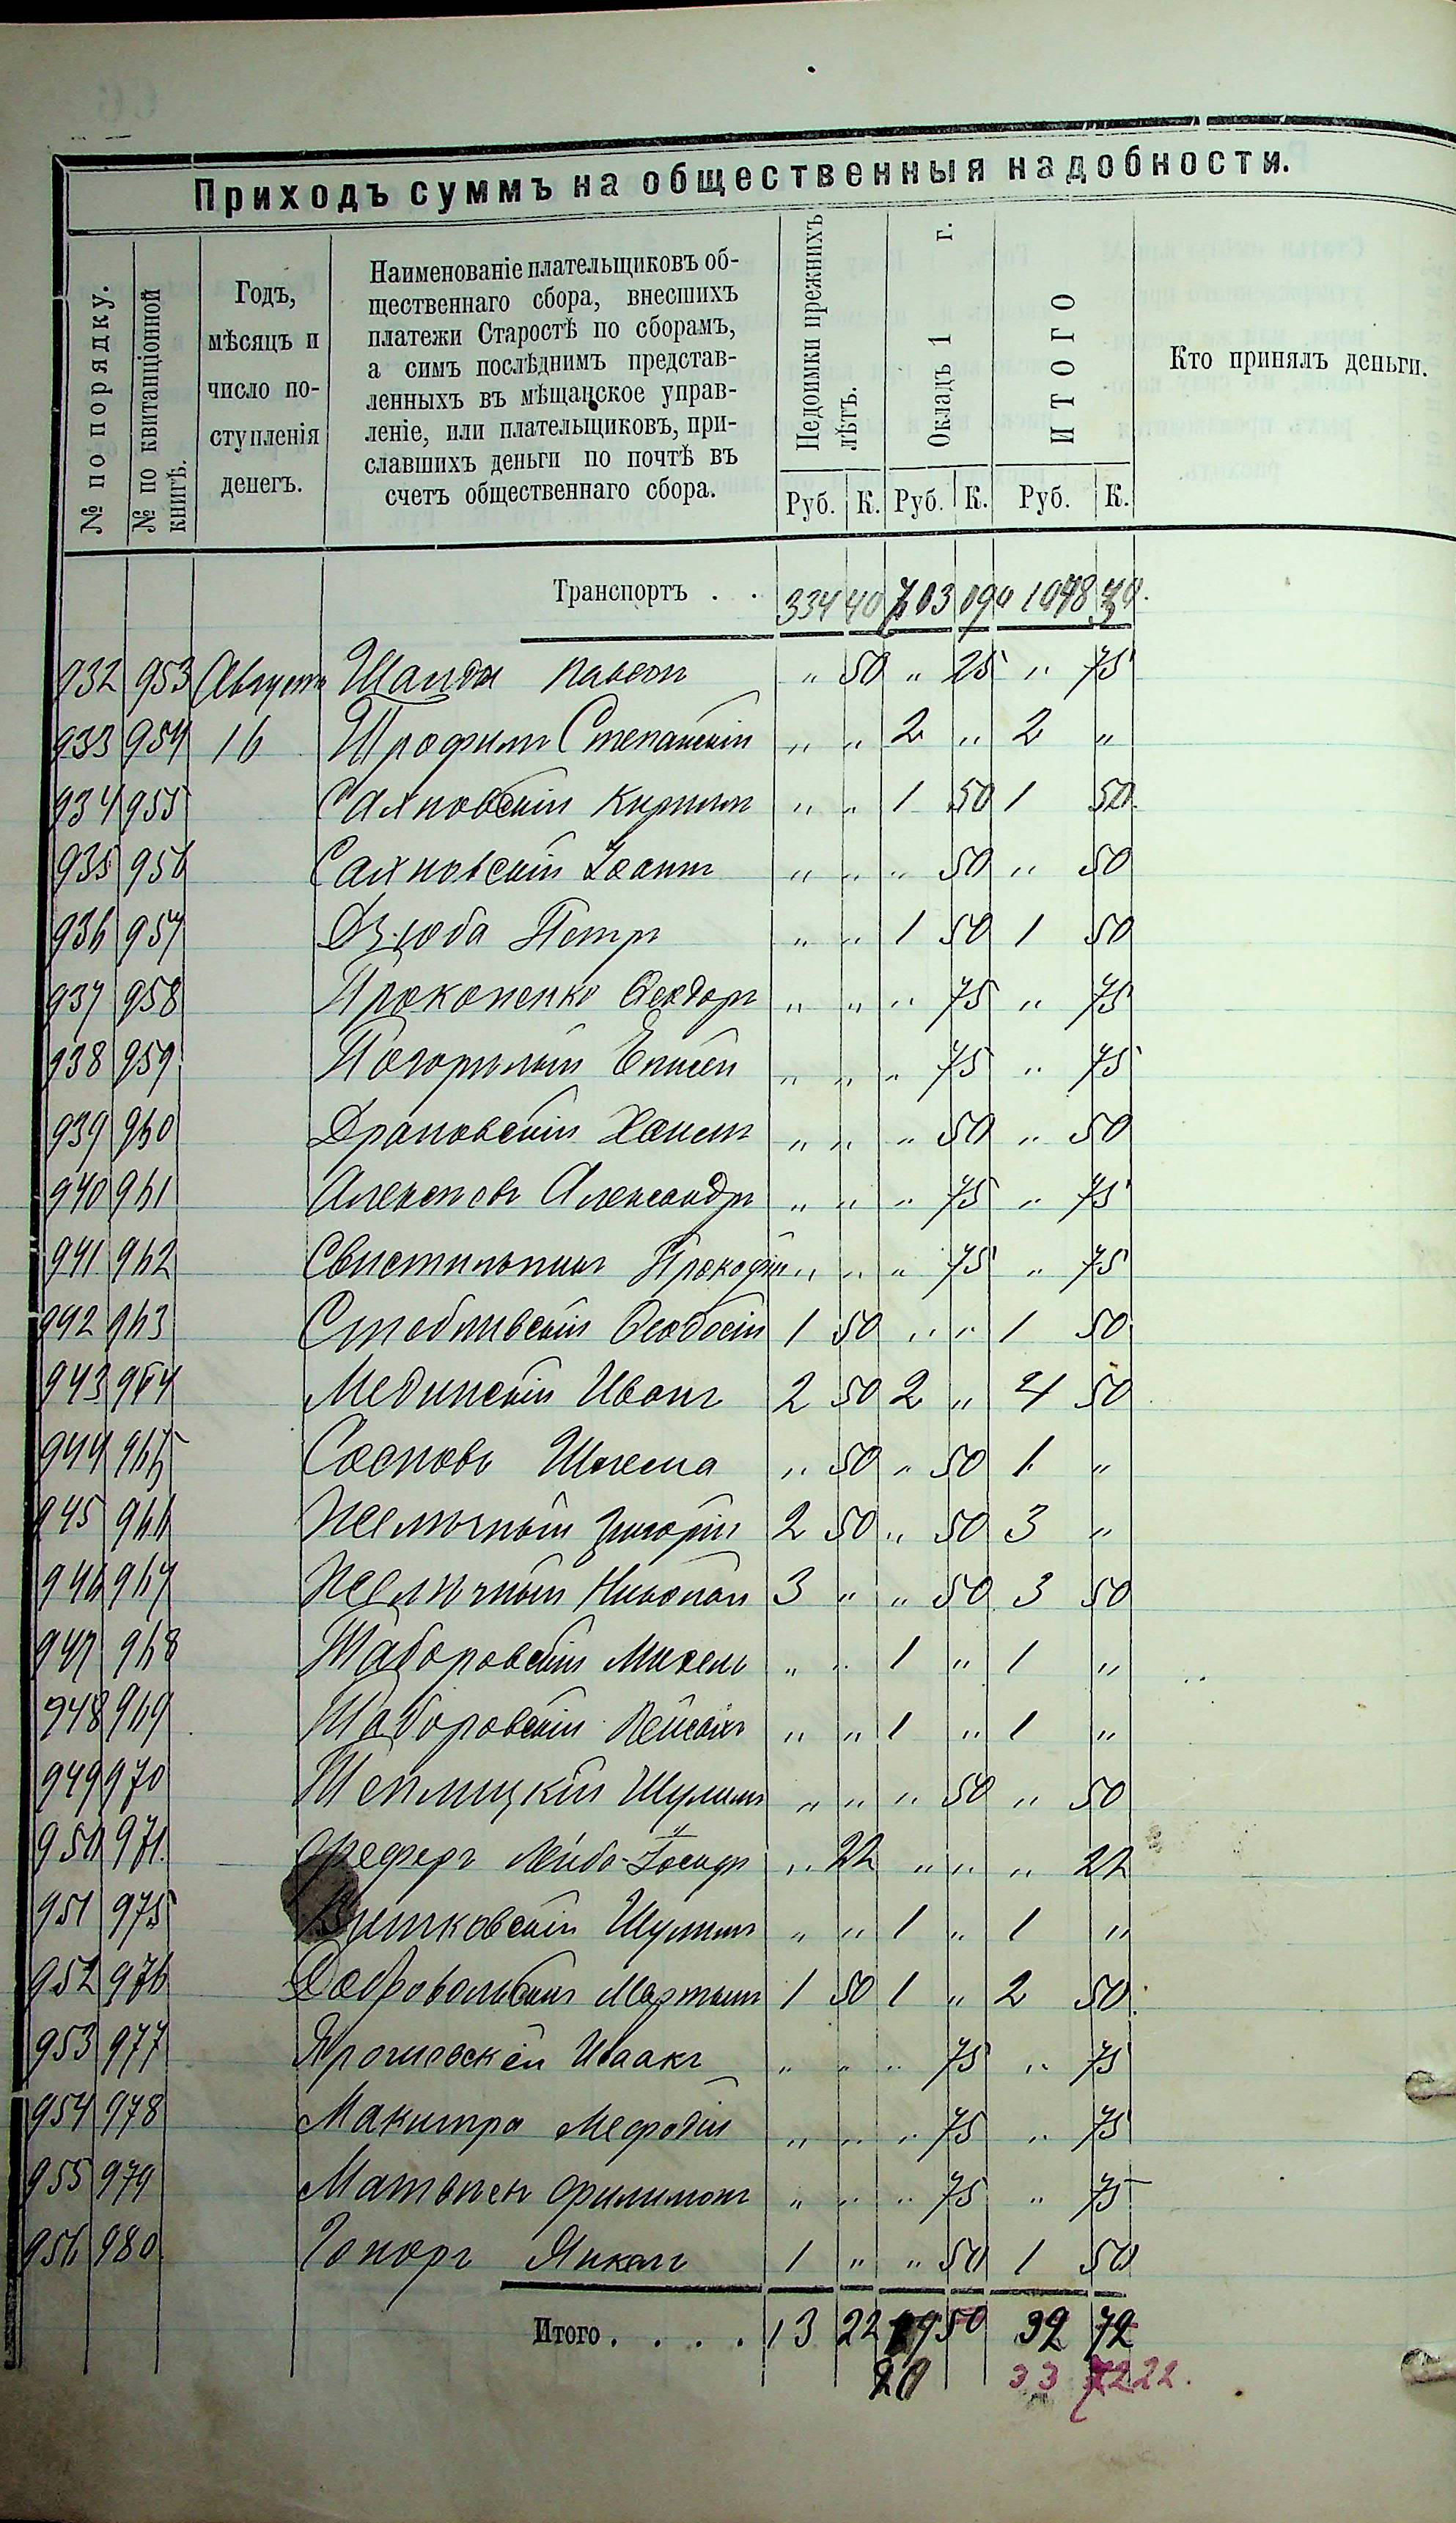 Приходъ суммъ на общественныя надобности.
№ по порядку.
№ по квитанціонной книгѣ.
Годъ,
мѣсяцъ и
число по-
ступленія
денегъ.
Наименованіе плательщиковъ об-
щественнаго сбора, внесшихъ
платежи Старостѣ по сборамъ,
а симъ послѣднимъ представ-
ленныхъ въ мѣщанское управ-
леніе, или плательщиковъ, при-
славшихъ деньги по почтѣ въ
счетъ общественнаго сбора.
Недоимки прежнихъ лѣтъ.
Окладъ 1 г.
ИТОГО
Кто принялъ деньги.
Руб. К. Руб. К. Руб. К.
Транспортъ . . 334 40 703
932 953 Августа Шайда " 50 " 25 " 75
933 954 16 Трофим Степанскій " " 2 " 2 "
934 955 Сахновскій Кирилл " " 1 50 1 50
935 956 Сахновскій Іоанн " " " 50 " 50
936 957 Дзюба Петр " " 1 50 1 50
937 958 Прокопенко Ѳеодор " " " 75 " 75
938 959 Погорилый " " " 75 " 75
939 960 Драновскій " " " 50 " 50
940 961 Алексѣев Александр " " " 75 " 75
941 962 Свистильник Прокофій " " " 75 " 75
942 963 Стебливскій Ѳеодосій 1 50 " " 1 50
943 964 Мединскій Иван 2 50 2 " 4 50
944 965 Соснов Шлема " 50 " 50 1 "
945 966 Желючный Григорій 2 50 " 50 3 "
946 967 Желючный Николай 3 " " 50 3 50
947 968 Таборовскій Михель " " 1 " 1 "
948 969 Таборовскій Пейсах " " 1 " 1 "
949 970 Теплицкій Шулим " " " 50 " 50
950 971 Фефер Лейба-Іосиф " 22 " " " 22
951 975 Витковскій Шулим " " 1 " 1 "
952 976 Добровольскій Мартын 1 50 1 " 2 50
953 977 Ярошевскій Исаак " " " 75 " 75
954 978 Макитра Мефодій " " " 75 " 75
955 979 Матвѣев Филимон " " " 75 " 75
956 980 Гонор Янкель 1 " " 50 1 50
Итого . . . . 13 22 19 50 32 72
20 33 22.